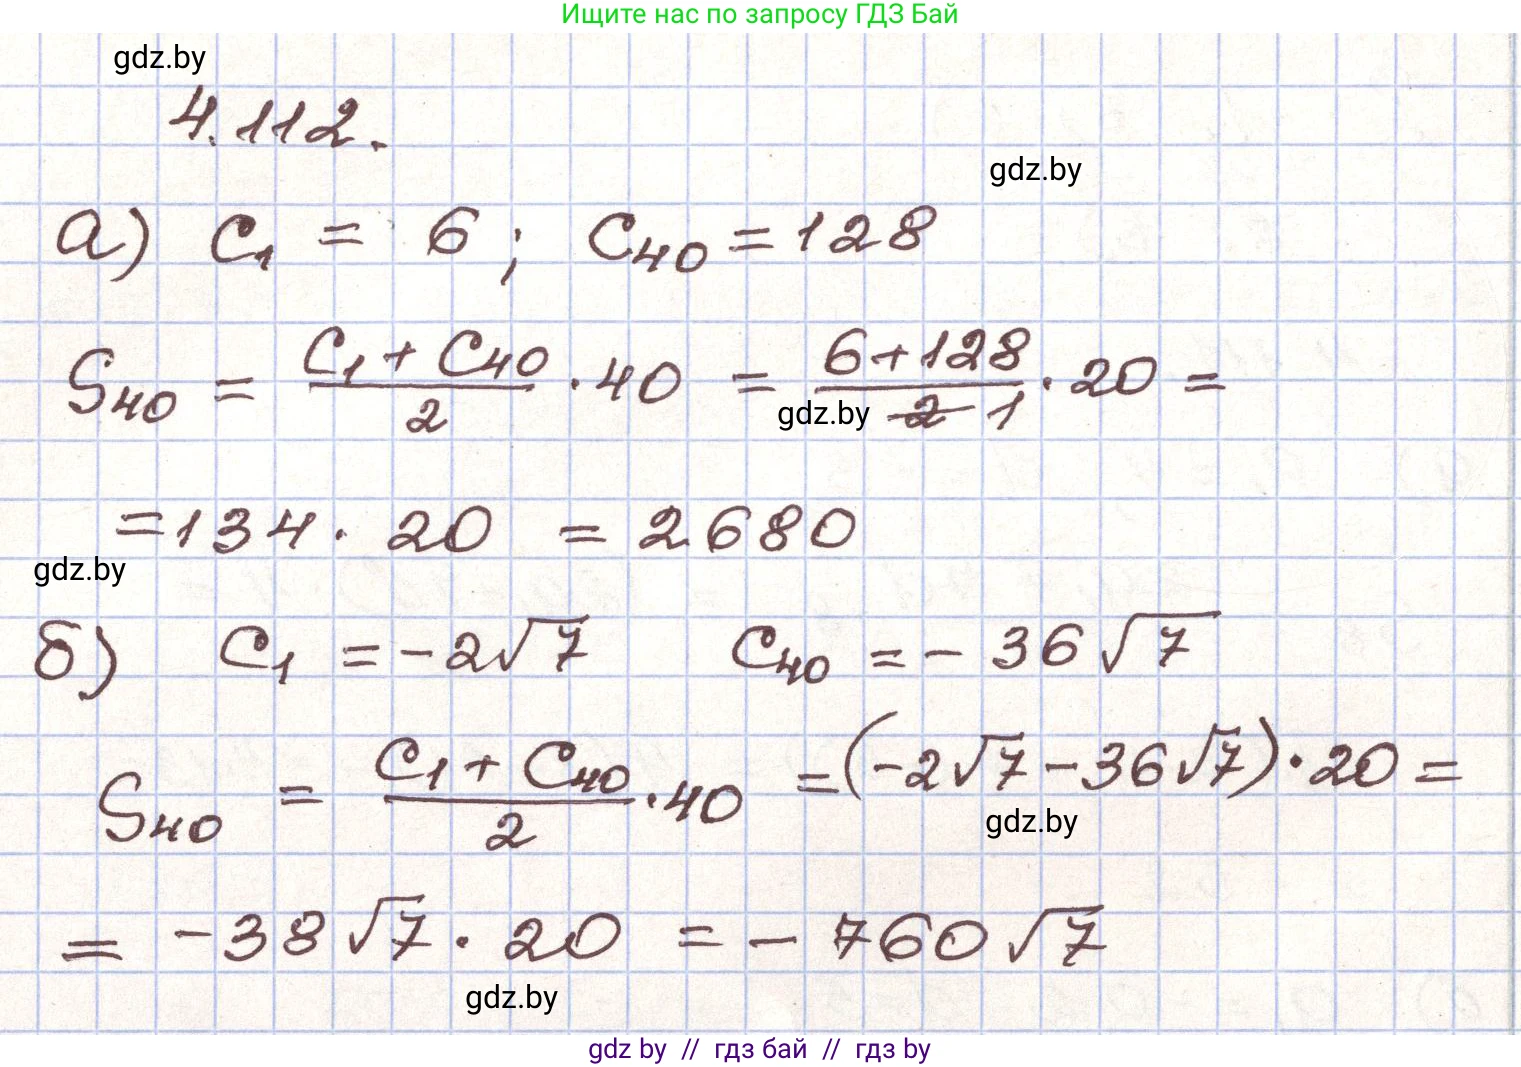 Ищите нас по запросу ГДЗ Бай
gdz.by
4.112.
gdz.by
а) C₁ = 6 ; C₄₀ = 128
S₄₀ = (C₁ + C₄₀)/2 · 40 = (6+128)/(2̶ 1) · 20 =
gdz.by
= 134 · 20 = 2680
gdz.by
б) C₁ = -2√7 C₄₀ = - 36√7
S₄₀ = (C₁ + C₄₀)/2 · 40 = (-2√7 - 36√7) · 20 =
gdz.by
= -38√7 · 20 = - 760√7
gdz.by
gdz by // гдз бай // гдз by